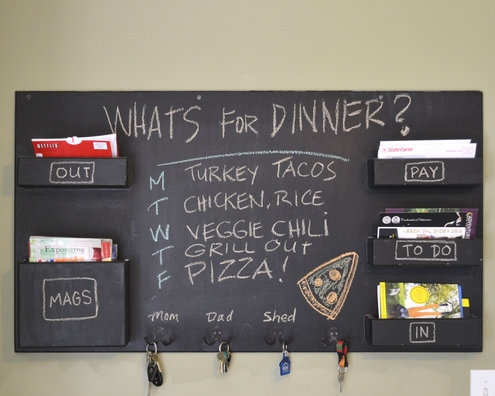 WHAT'S FOR DINNER?
NETFLIX
OUT
StateFarm
PAY
M TURKEY TACOS
T CHICKEN, RICE
W VEGGIE CHILI
T GRILL OUT
F PIZZA!
TO DO
Exposures
MAGS
IN
Mom Dad Shed